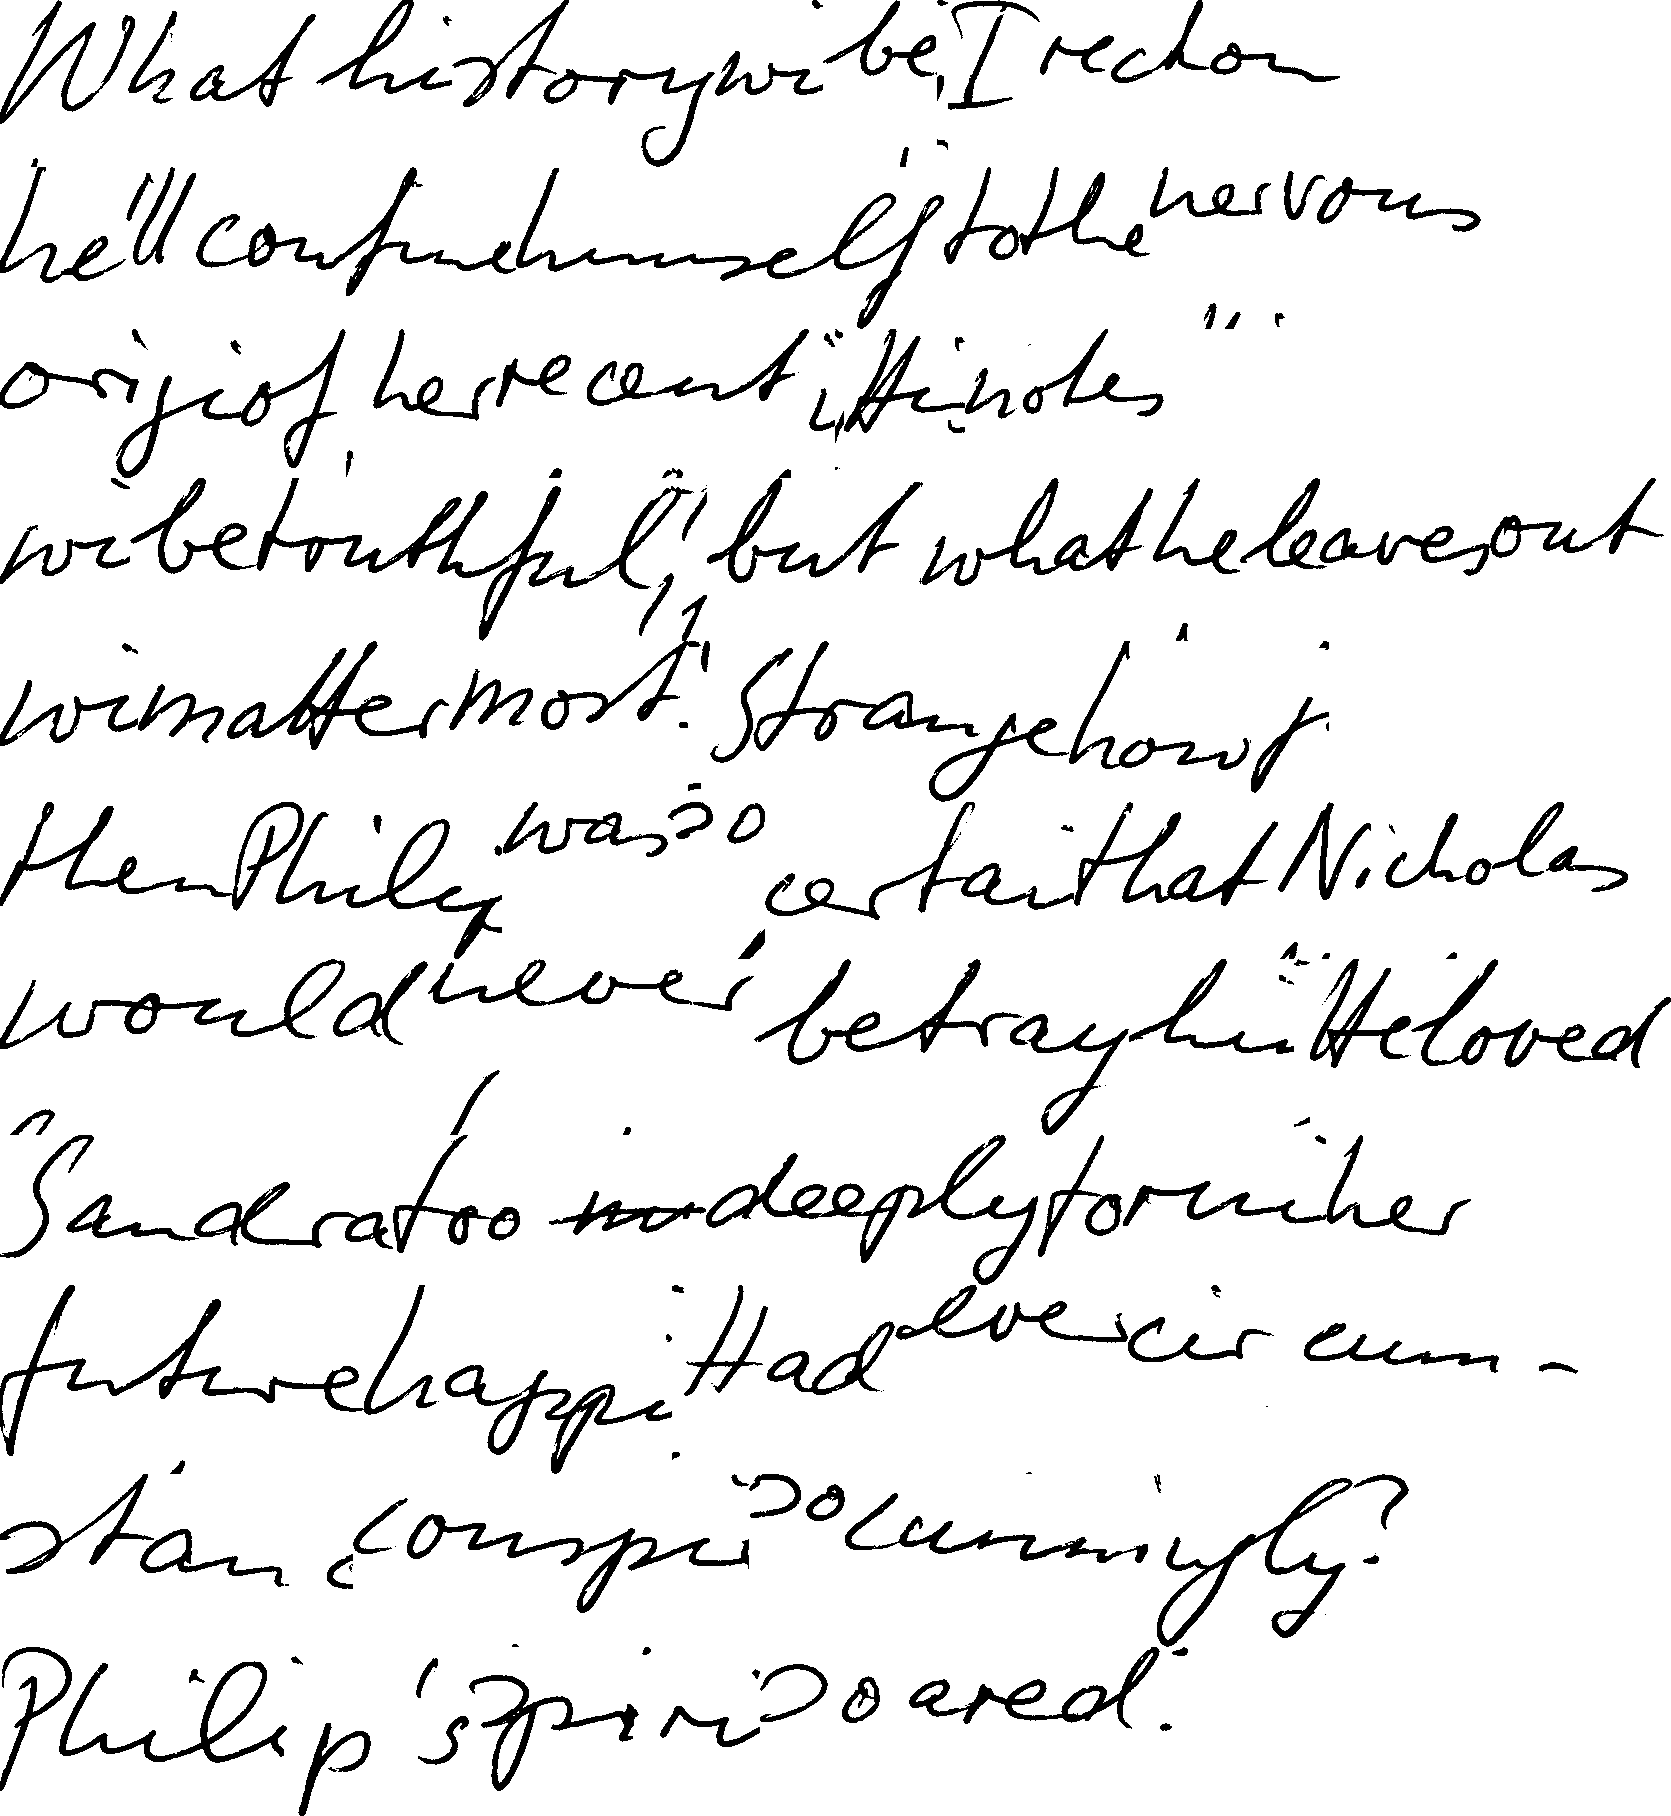 What history wi be, I reckon
he'll confine himself to the nervous
origi of her recent "Hi notes
wi be truthful", but what he leaves out
wi matter most." Strange how
then Philip was so certai that Nicholas
would never betray hi He loved
Sandra too deeply tor i her
future happi Had ever circum-
stan conspi so cunningly?
Philip's spiri soared.